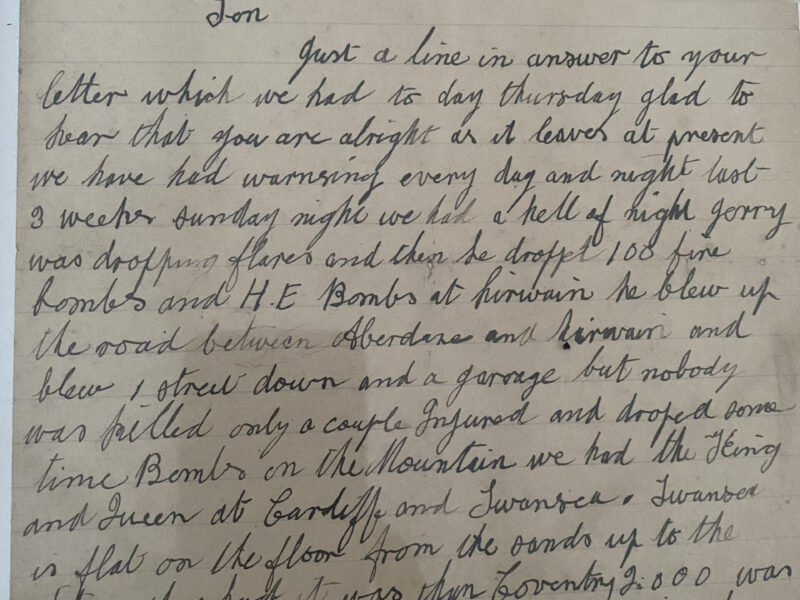 Son
Just a line in answer to your
letter which we had to day thursday glad to
hear that you are alright as it leaves at present
we have had warnsing every day and night last
3 weeks sunday night we had a hell of night gerry
was dropping flares and then he droppt 100 fire
bombs and H.E Bombs at hirwain he blew up
the road between Aberdare and hirwain and
blew 1 street down and a garage but nobody
was killed only a couple Injured and droped some
time Bombs on the Mountain we had the King
and Queen at Cardiff and Swansea. Swansea
is flat on the floor from the sands up to the
it was than Coventry 2.000 was